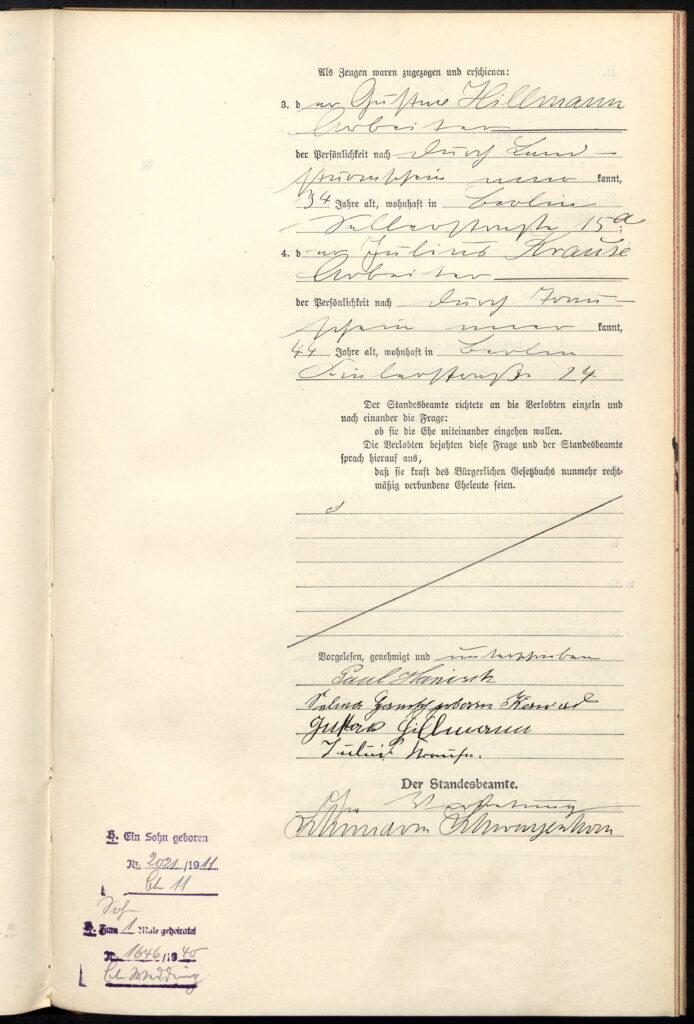 Als Zeugen waren zugezogen und erschienen:
3. d er Gustav Hillmann
Arbeiter
der Persönlichkeit nach durch Land-
sturmschein aner kannt,
34 Jahre alt, wohnhaft in Berlin
Sellerstraße 15a.
4. d er Julius Krause
Arbeiter
der Persönlichkeit nach durch Trau-
schein aner kannt,
44 Jahre alt, wohnhaft in Berlin
straße 24
Der Standesbeamte richtete an die Verlobten einzeln und
nach einander die Frage:
ob sie die Ehe miteinander eingehen wollen.
Die Verlobten bejahten diese Frage und der Standesbeamte
sprach hierauf aus,
daß sie kraft des Bürgerlichen Gesetzbuchs nunmehr recht-
mäßig verbundene Eheleute seien.
Vorgelesen, genehmigt und unterschrieben
Paul Hanisch
Selma geborene
Gustav Hillmann
Julius Krause.
Der Standesbeamte.
In Vertretung
H. Ein Sohn geboren
Nr. 2021/1911
Bln 11
Sohn
H. Zum 1 Male geheiratet
Nr. 1646/1940
Bln Wedding